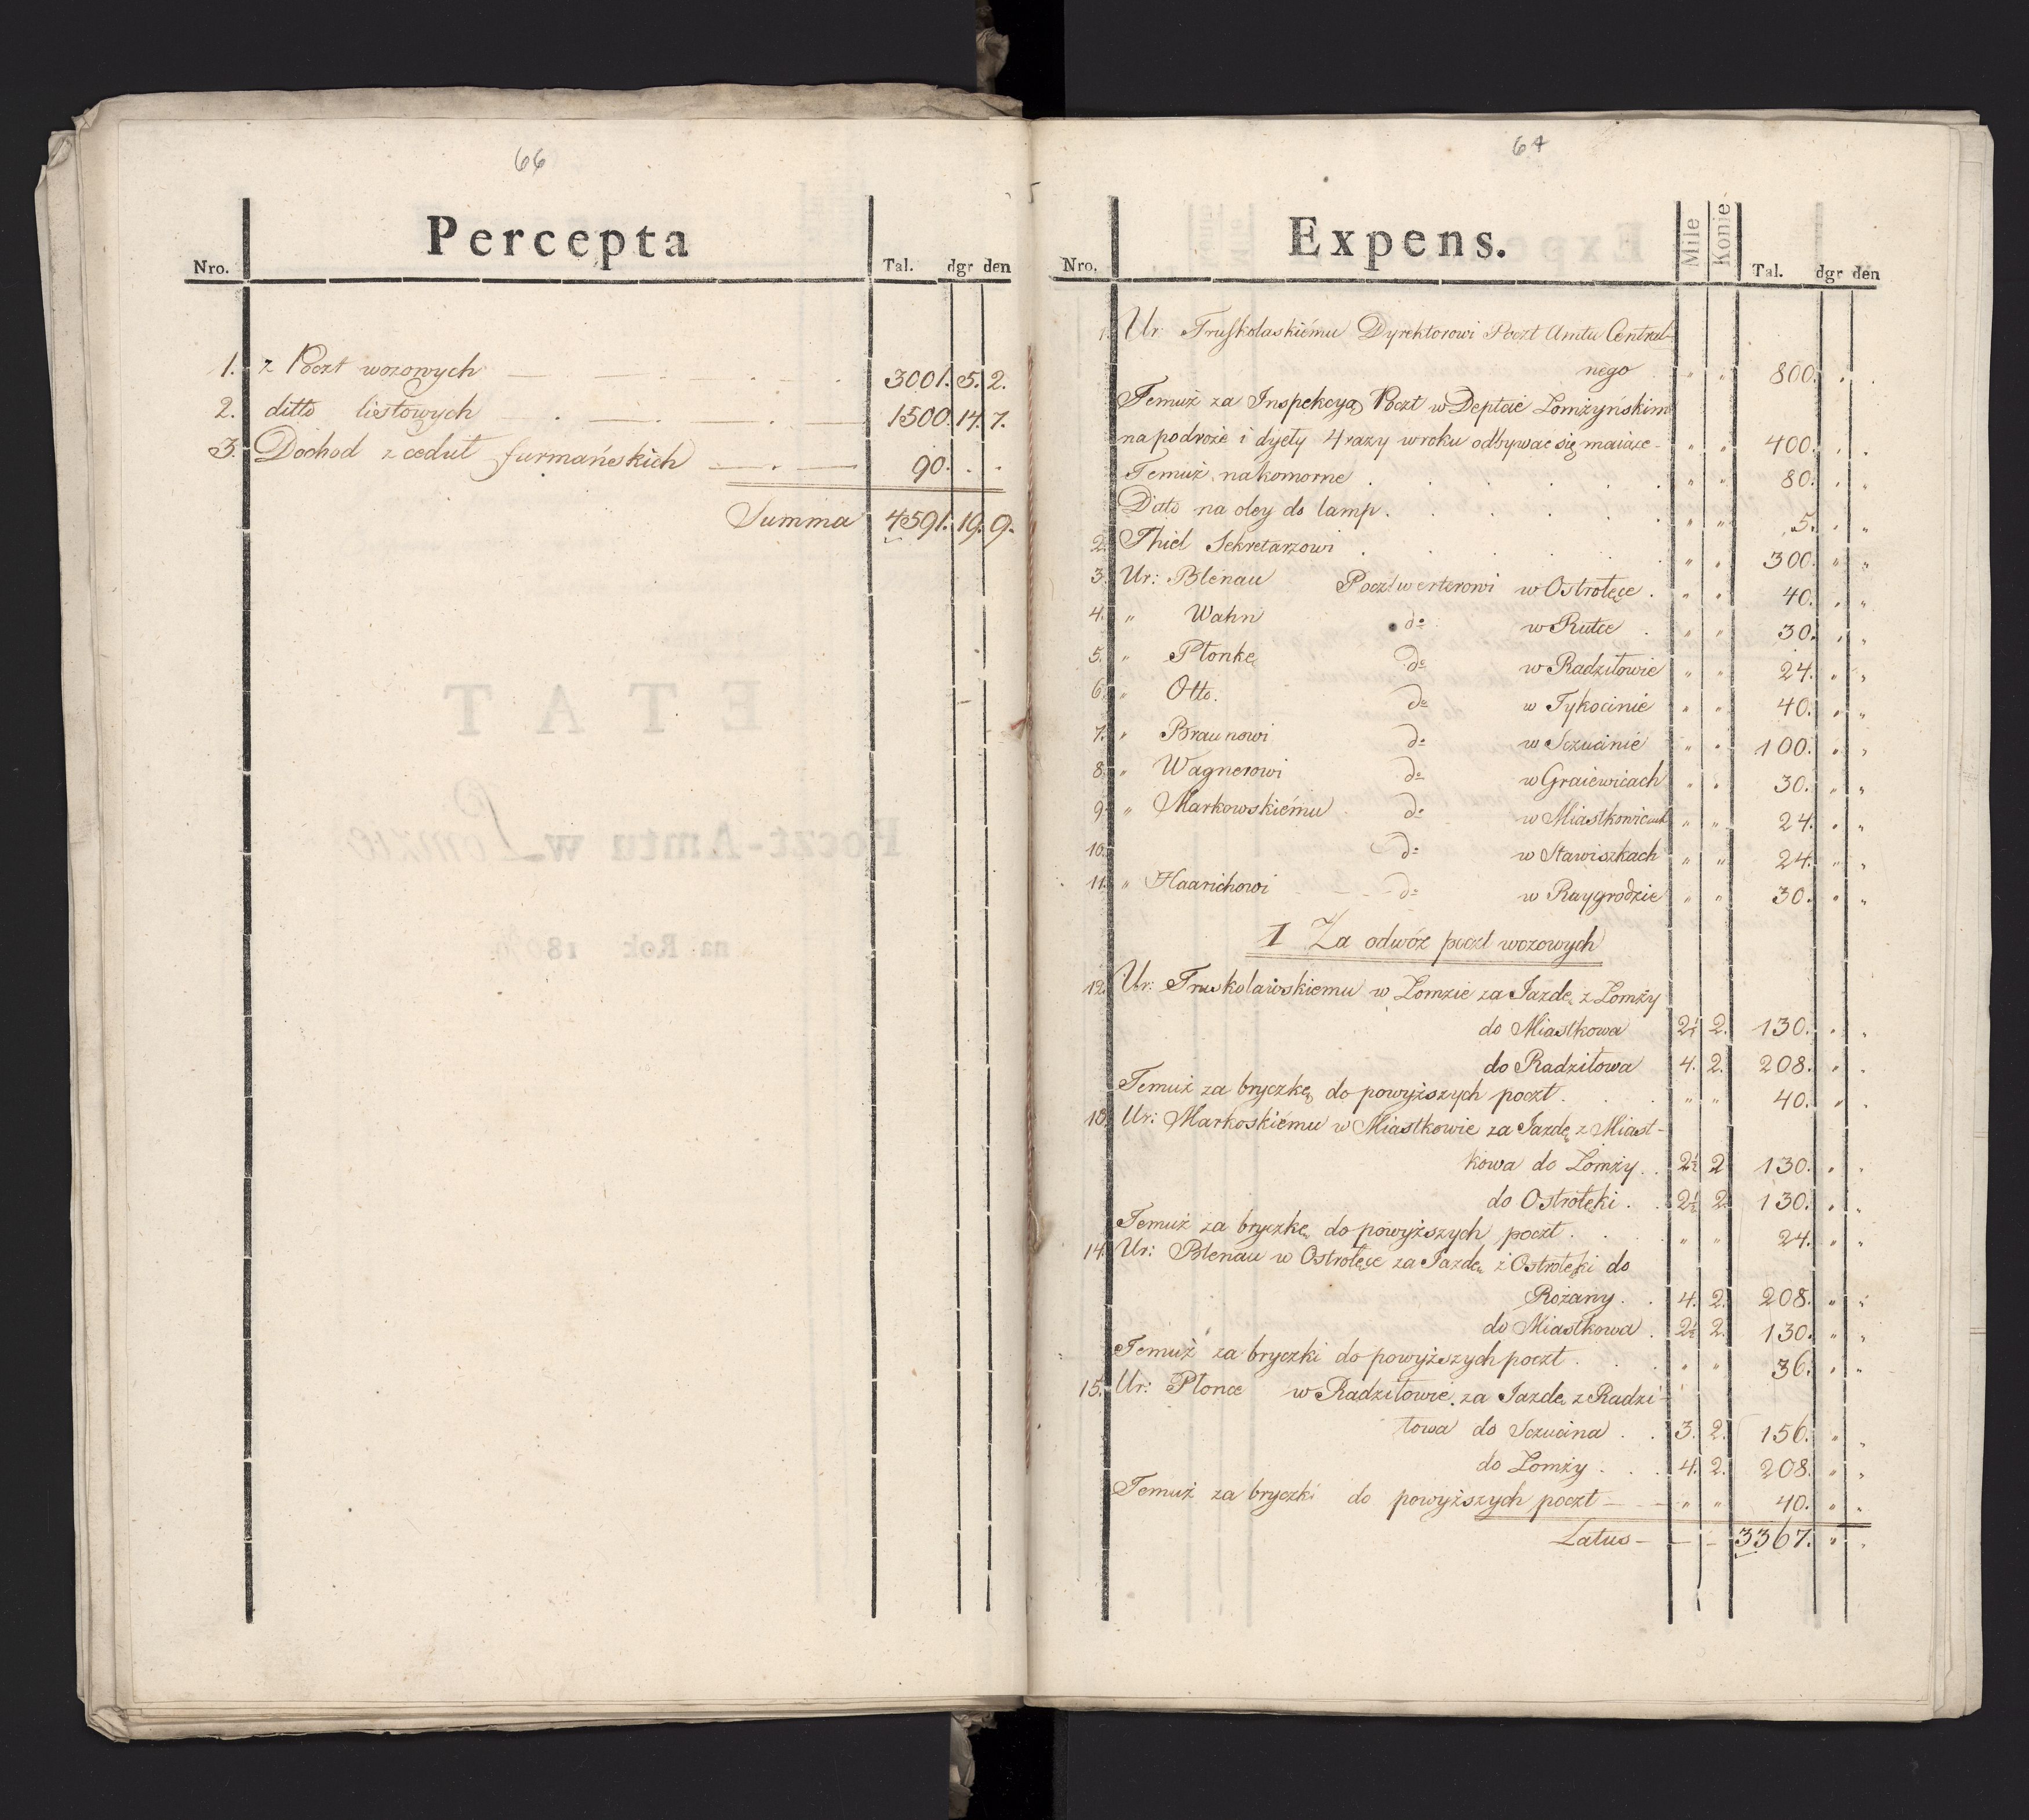 66
Percepta
Nro. Tal. dgr den
1. z Poczt wozowych 3001. 5. 2.
2. ditto listowych 1500. 14. 7.
3. Dochod z cedut furmańskich 90. . .
Summa 4591. 19. 9.
67
Expens.
Nro. Mile Konie Tal. dgr den
1. Ur: Truskolaskiému Dyrektorowi Poczt Amtu Central-
nego " " 800. . .
Temuż za Inspekcyą Poczt w Deptcie Lomżyńskim
na podroże i dyety 4 razy w roku odbywac się maiące - " " 400. . .
Temuż na komorne " " 80. . "
Dito na oley do lamp " " 5. " "
2. Thiel Sekretarzowi " " 300. " "
3. Ur: Blenau Pocztwerterowi w Ostrołęce " " 40. " "
4. " Wahn do w Rutce " " 30. " "
5. " Płonkę do w Radziłowie " " 24. " "
6. " Otto. do w Tykocinié " " 40. " "
7. " Braunowi do w Sczucinié " " 100. " "
8. " Wagnerowi do w Graiéwicach " " 30. " "
9. " Markowskiému do w Miastkowicach " " 24. " "
10. do w Stawiszkach " " 24. " "
11. " Haarichowi do w Raygrodzie " " 30. " "
I Za odwóz poczt wozowych
12. Ur: Truskolawskiemu w Lomzie za Jazdę z Lomży
do Miastkowa 2½ 2. 130. " "
do Radziłowa 4. 2. 208. " "
Temuż za bryczkę do powyższych poczt " " 40. " "
13. Ur: Markoskiému w Miastkowie za Jazdę z Miast-
kowa do Lomży 2½ 2 130. " "
do Ostrołęki 2½ 2 130. " "
Temuż za bryczkę do powyższych poczt " " 24. " "
14. Ur: Blenau w Ostrołęce za Jazdę z Ostrołęki do
Rożany 4. 2. 208. " "
do Miastkowa 2½ 2. 130. " "
Temuż za bryczki do powyższych poczt " " 36. " "
15. Ur: Płonce w Radziłowie za Jazdę z Radzi-
łowa do Sczucina 3. 2. 156. " "
do Lomży 4. 2. 208. " "
Temuż za bryczki do powyższych poczt " " 40. " "
Latus - - - 3367. " "